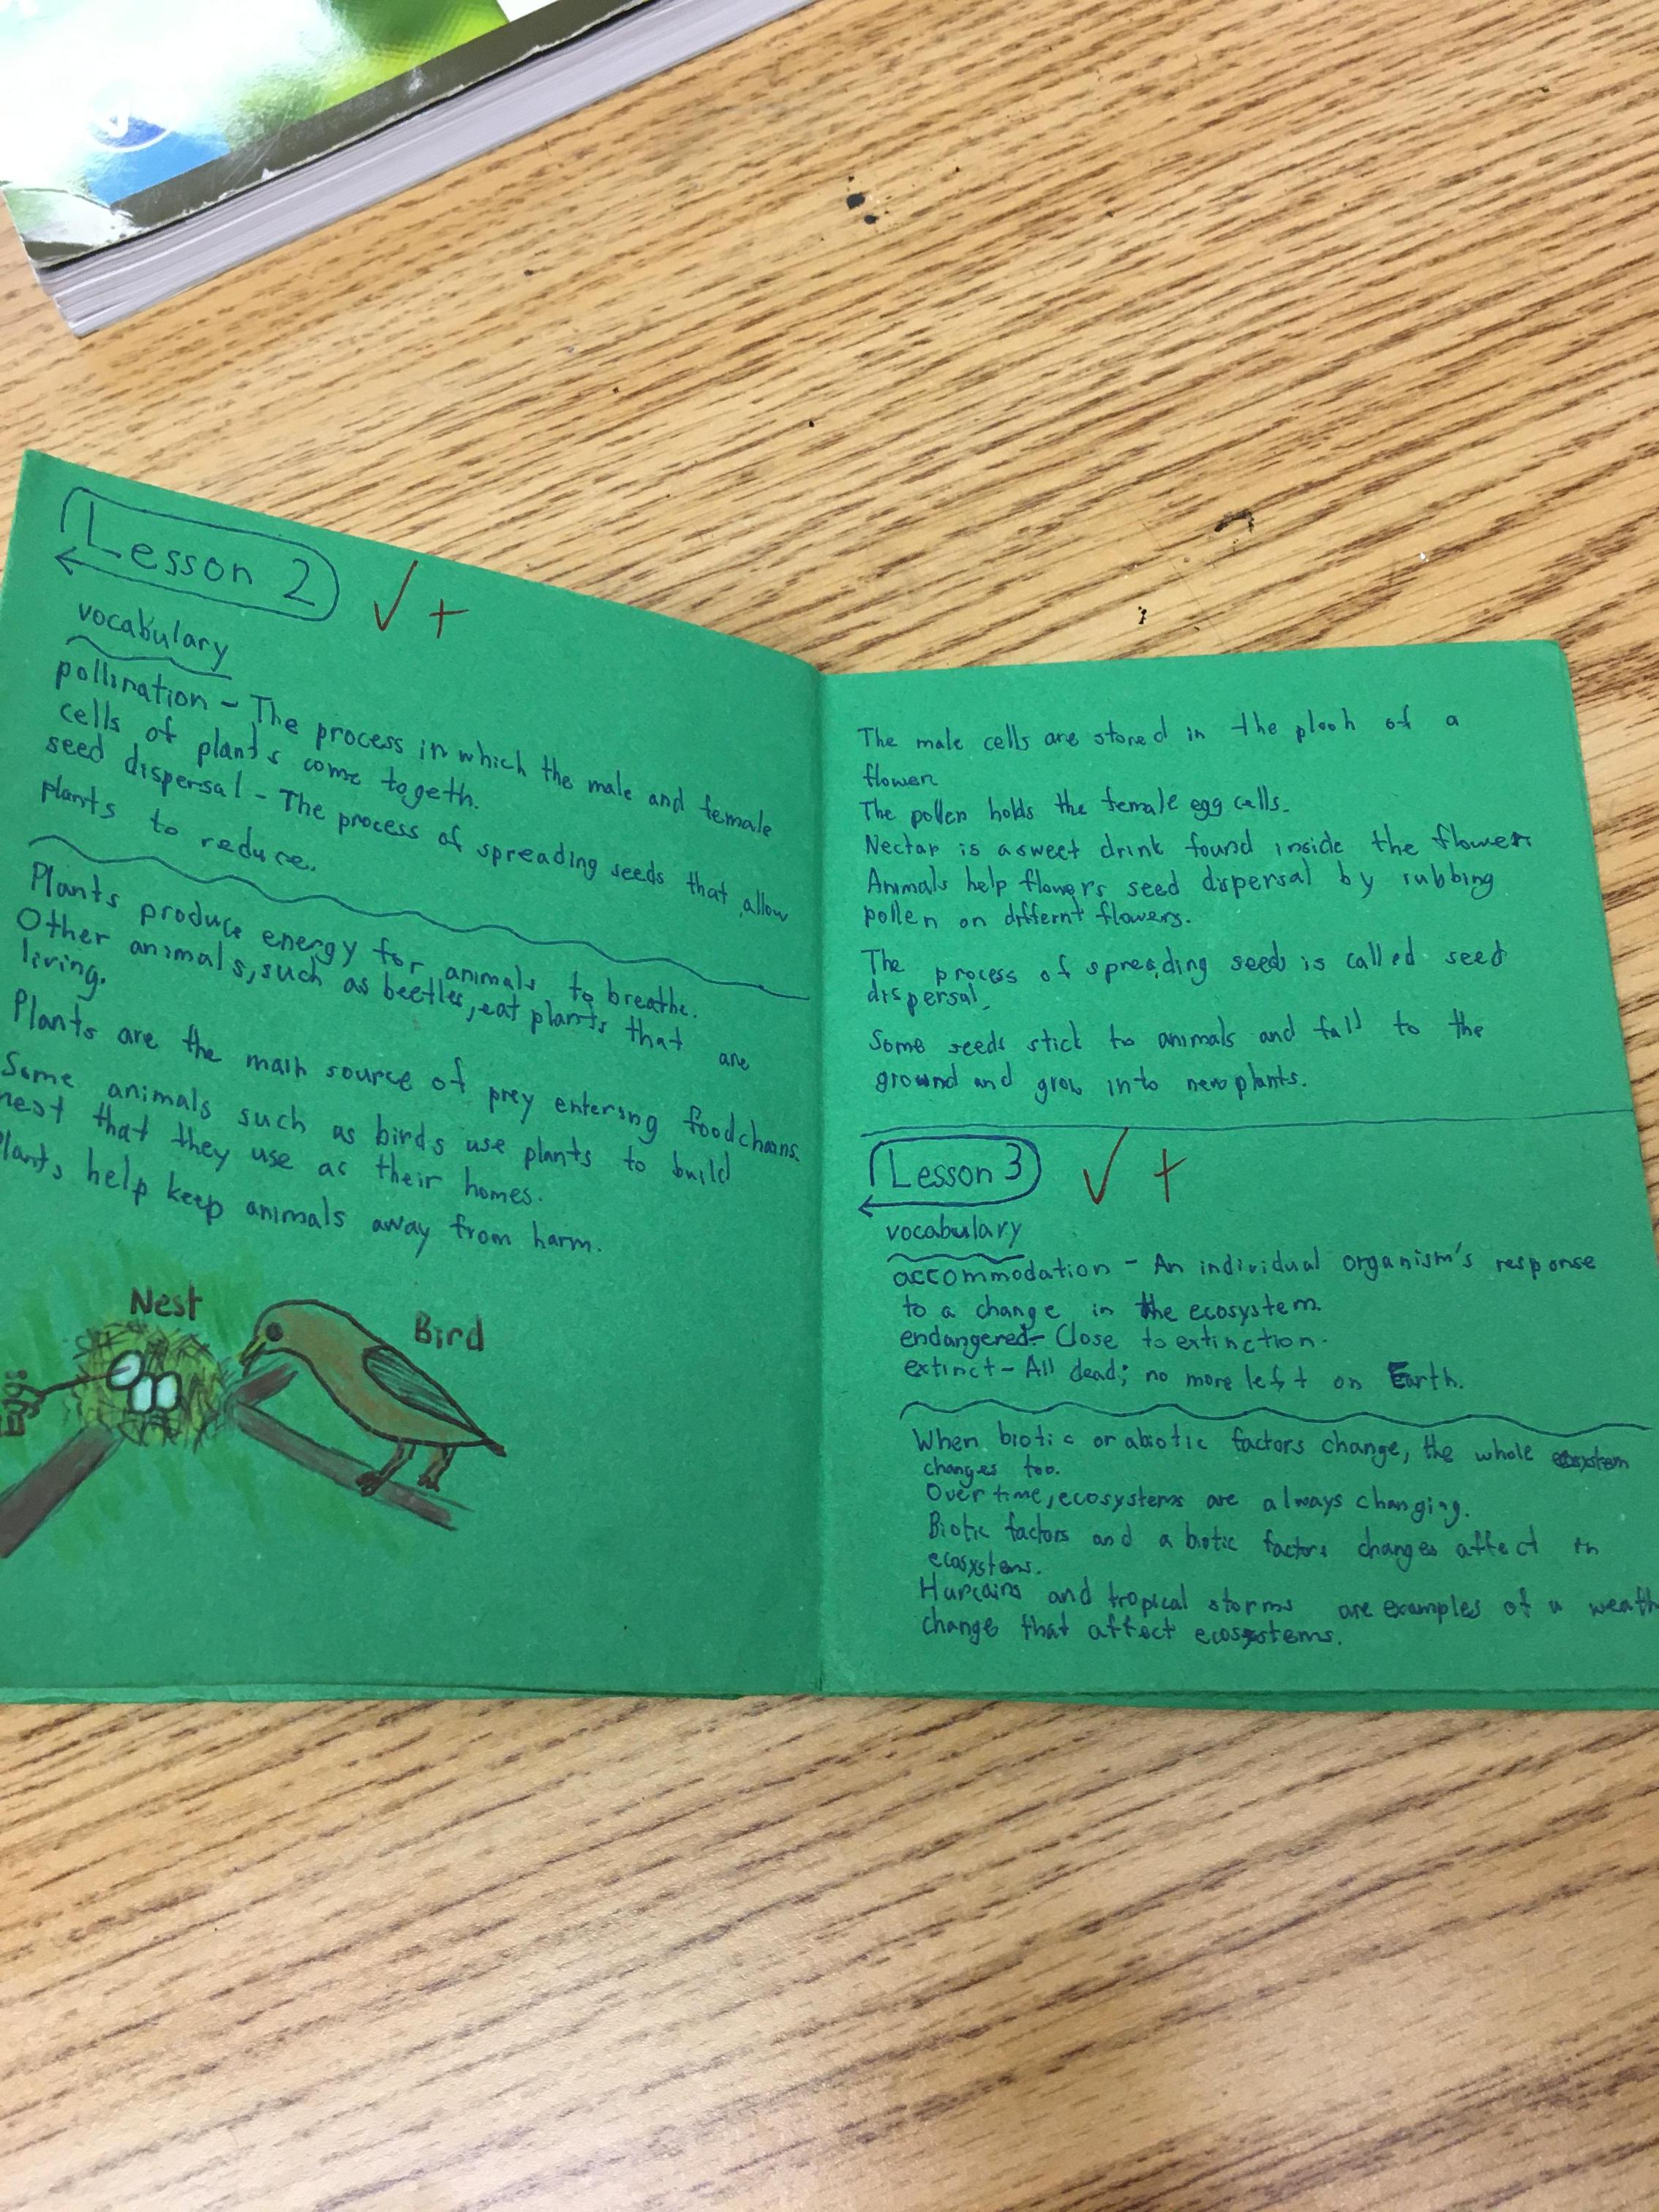 Lesson 2 ✓+
vocabulary
pollination - The process in which the male and female
cells of plants come togeth.
seed dispersal - The process of spreading seeds that allow
plants to reduce.
Plants produce energy for animals to breathe.
Other animals, such as beetles, eat plants that are
living.
Plants are the main source of prey entering foodchains.
Some animals such as birds use plants to build
nest that they use as their homes.
Plants help keep animals away from harm.
Nest
Bird
Eggs
The male cells are stored in the of a
flower.
The pollen holds the female egg cells.
Nectar is a sweet drink found inside the flower.
Animals help flowers seed dispersal by rubbing
pollen on differnt flowers.
The process of spreading seeds is called seed
dispersal.
Some seeds stick to animals and fall to the
ground and grow into new plants.
Lesson 3 ✓+
vocabulary
accommodation - An individual organism's response
to a change in the ecosystem.
endangered - Close to extinction.
extinct - All dead; no more left on Earth.
When biotic or abiotic factors change, the whole ecosystem
changes too.
Over time, ecosystems are always changing.
Biotic factors and abiotic factors changes affect in
ecosystems.
Hurcains and tropical storms are examples of a weath
change that affect ecosystems.